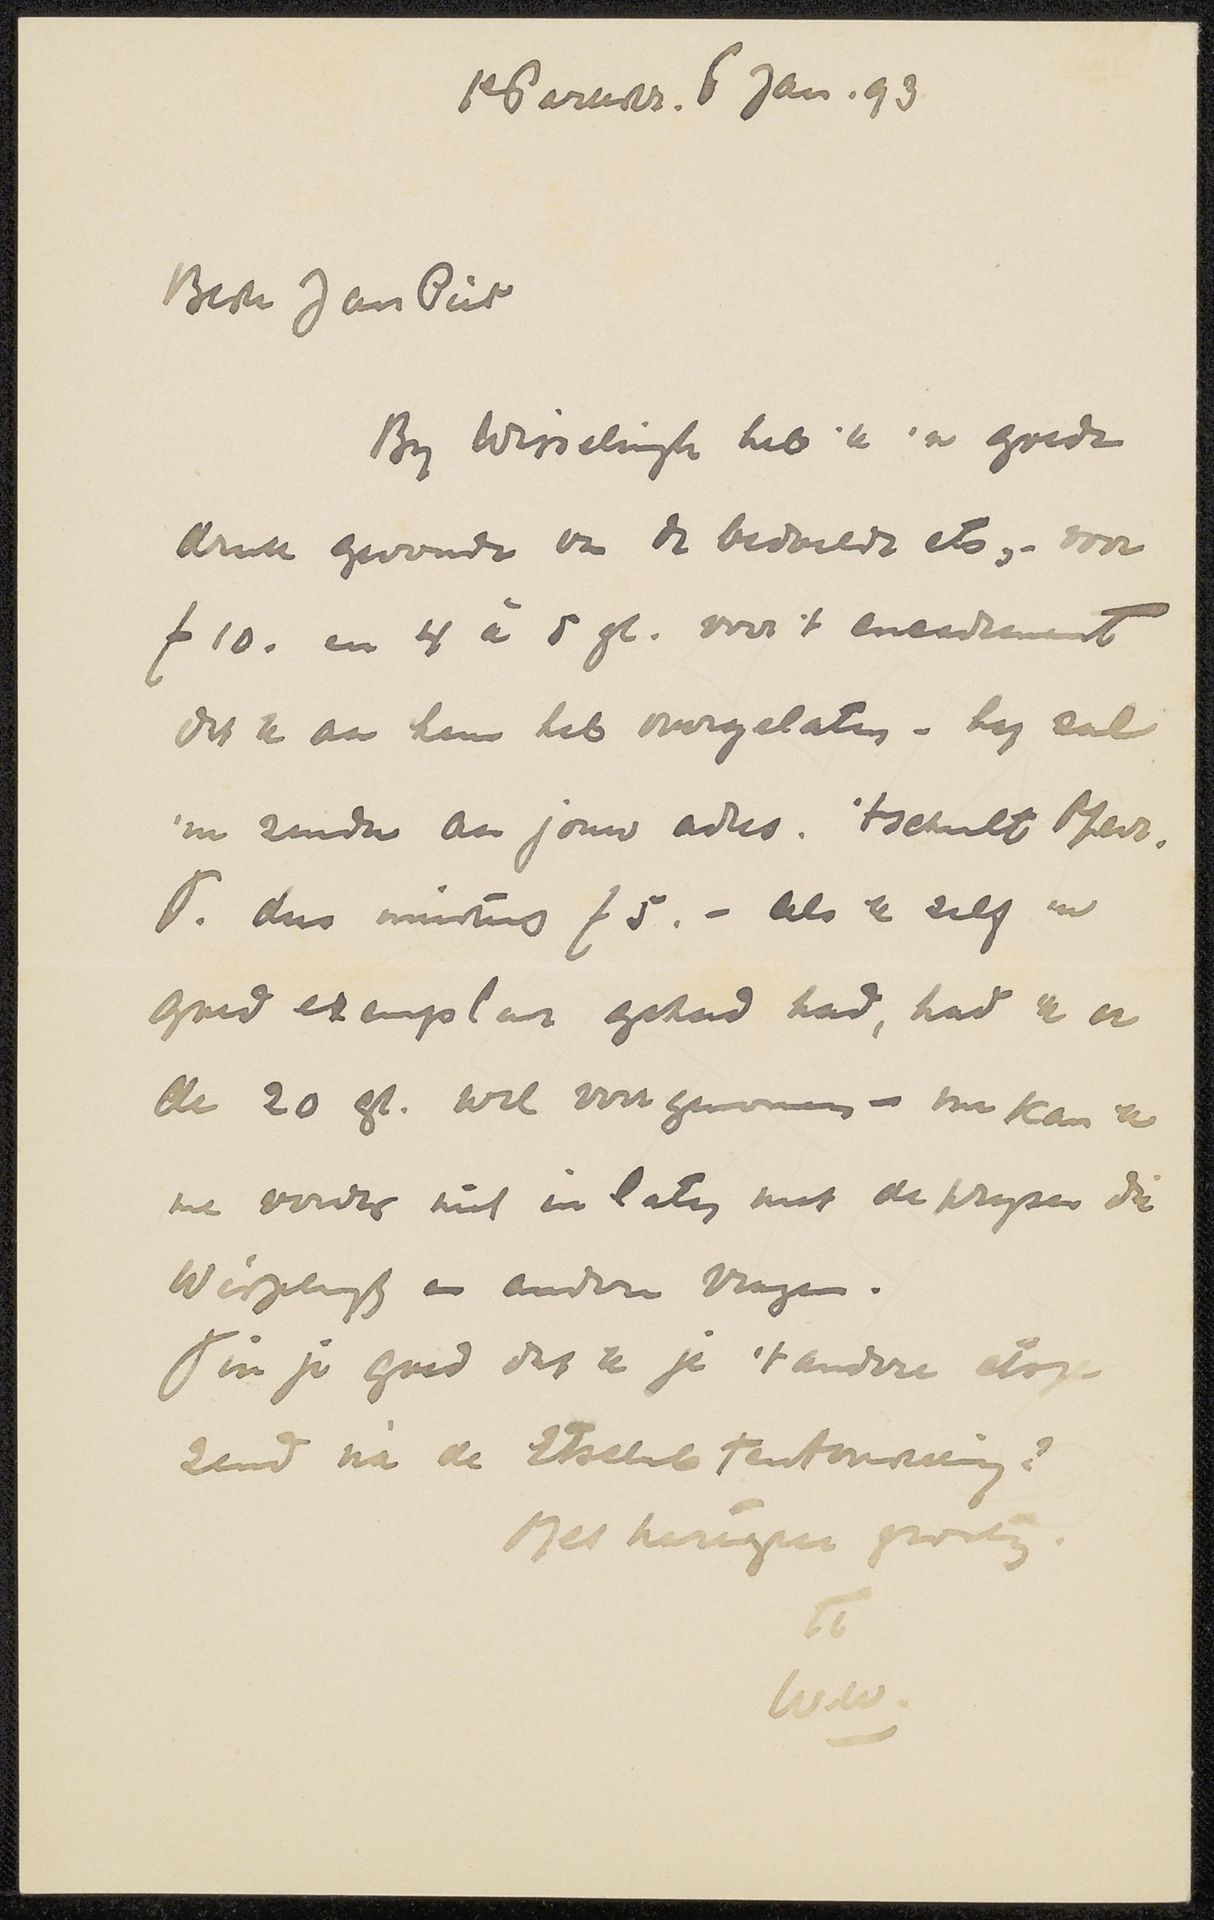 6 Jan. 93
Beste Jan Piet
By Wisselingh heb 'k 'n goede
druk gevonden van de bedoelde ets, - voor
f 10. en 4 à 5 gl. voor 't encadrement
dat 'k aan hem heb overgelaten - hy zal
'm zenden aan jouw adres. 't scheelt Mevr.
T. dus minstens f 5. - Als 'k zelf 'n
goed exemplaar gehad had, had 'k er
de 20 gl. wel voor genomen - nu kan 'k
me verder niet in laten met de pryzen die
Wisselingh en andere vragen.
Vin je goed dat 'k je 't andere etsje
zend nà de Etsclub tentoonstelling?
Met hartelyke groeten.
TT
W.W.